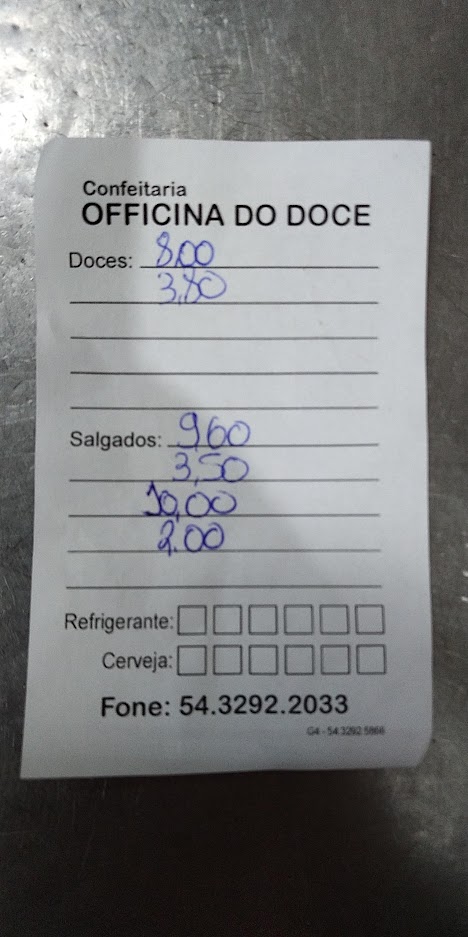 Confeitaria
OFFICINA DO DOCE
Doces: 8,00
3,80
Salgados: 9,60
3,50
10,00
2.00
Refrigerante:
Cerveja:
Fone: 54.3292.2033
G4 - 54 3292 5866